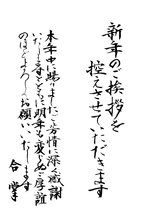 新年のご挨拶を
控えさせていただきます
本年中に賜りましたご芳情に深く感謝
いたしますとともに明年も変らぬご厚誼
のほどよろしくお願いいたします
合掌